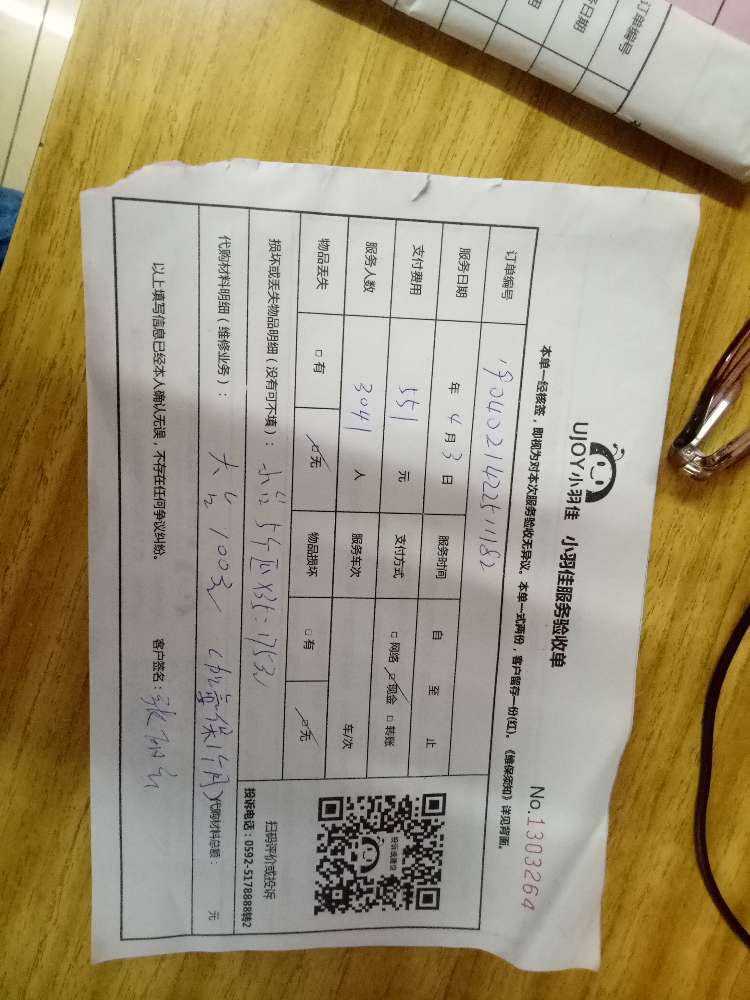 UJOY小羽佳 小羽佳服务验收单 No.1303264
本单一经核签，即视为对本次服务验收无异议。本单一式两份，客户留存一份(红)。《维保须知》详见背面。
订单编号 190402142251182
服务日期 年 4 月 3 日 服务时间 自 至 止
支付费用 551 元 支付方式 □网络 ☑现金 □转账
服务人数 3041 人 服务车次 车/次
物品丢失 □有 ☑无 物品损坏 □有 ☑无
扫码评价或投诉
投诉电话：0592-5178888转2
损坏或丢失物品明细（没有可不填）： X35=175元
代购材料明细（维修业务）： 大 100元 保1个月） 代购材料总额： 元
以上填写信息已经本人确认无误，不存在任何争议纠纷。 客户签名：
订单编号
日期